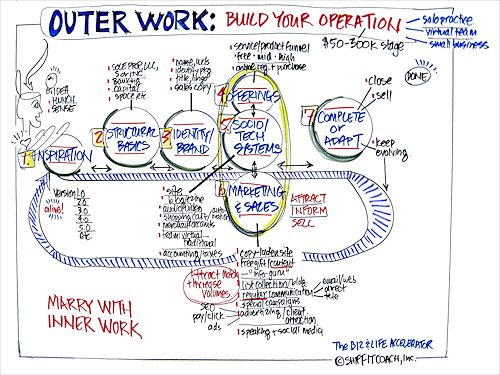 OUTER WORK: BUILD YOUR OPERATION
solopractice
virtual team
small business
$50-300K stage
IDEA
HUNCH
SENSE
SOLE PROP, LLC,
S or INC.
Banking
capital
space, etc
name, urls
identity pkg
title, slogan
sales copy
service/product funnel
free · mid · high
online reg. + purchase
close
sell
DONE
1 INSPIRATION
2 STRUCTURAL
BASICS
3 IDENTITY/
BRAND
4 OFFERINGS
5 SOCIO/
TECH
SYSTEMS
6 MARKETING
& SALES
7 COMPLETE
or
ADAPT
keep
evolving
Version 1.0
2.0
3.0
4.0
5.0
etc
alive!
site
blog/zine
audio/video
shopping cart/
merchant accounts
team: virtual
traditional
accounting/taxes
ATTRACT
INFORM
SELL
copy-laden site
free gift/content
"info-guru"
attract match
+ increase
volumes
list collection/blog
regular communication
special campaigns
email/web
direct
tele
SEO
pay/click
ads
advertizing/client
attraction
speaking + social media
MARRY WITH
INNER WORK
The BIZ & LIFE ACCELERATOR
© SHIFT-IT COACH, Inc.